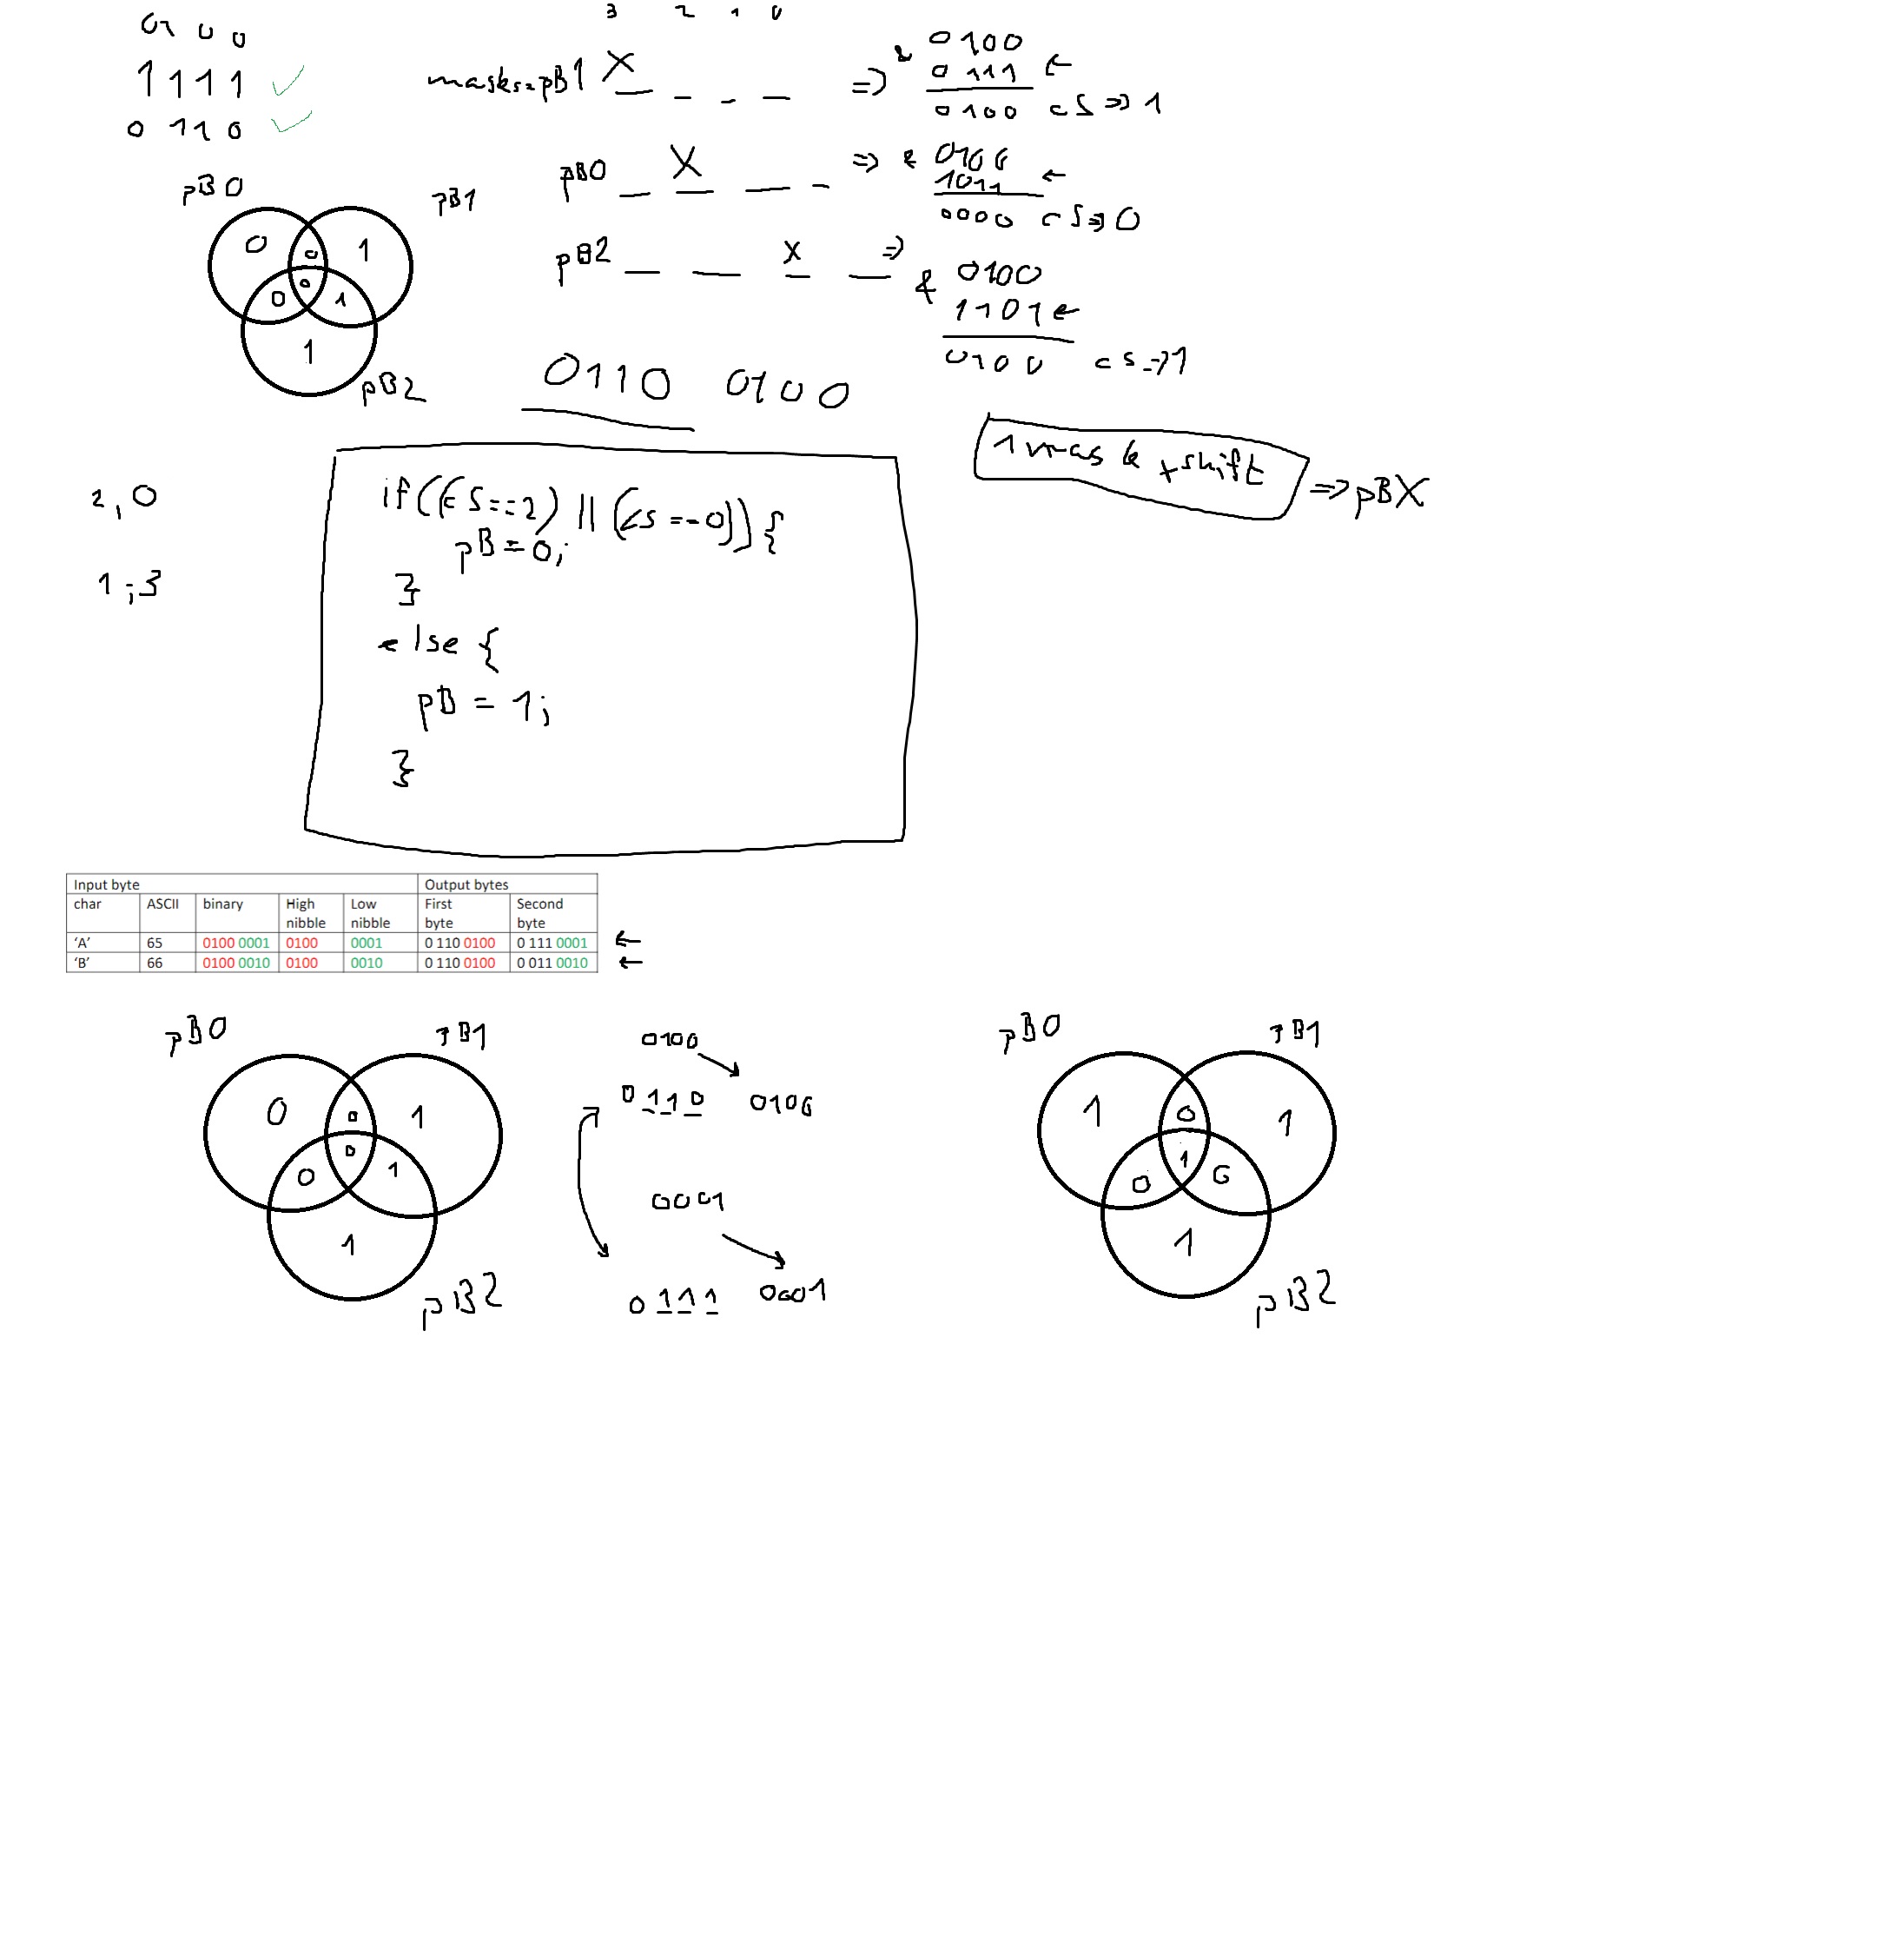 3 2 1 0
0100
1111
0110
masks=pB1 X _ _ _ => & 0100
0111 ←
0100 cS => 1
pB0 _ X _ _ => & 0100
1011 ←
0000 cS => 0
pB2 _ _ X _ => & 0100
1101 ←
0100 cS => 1
pB0 pB1
0 0 1
0 0 1
1
pB2
0110 0100
1 mask + shift => pBX
2,0
1;3
if((cS==2) || (cS==0)){
pB=0;
}
else {
pB = 1;
}
Input byte Output bytes
char ASCII binary High nibble Low nibble First byte Second byte
‘A’ 65 0100 0001 0100 0001 0 110 0100 0 111 0001 ←
‘B’ 66 0100 0010 0100 0010 0 110 0100 0 011 0010 ←
pB0 pB1
0 0 1
0 0 1
1
pB2
0100
0110 0100
0001
0111 0001
pB0 pB1
1 0 1
0 1 0
1
pB2